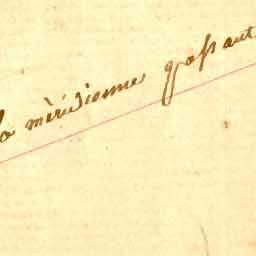 la méridienne passant